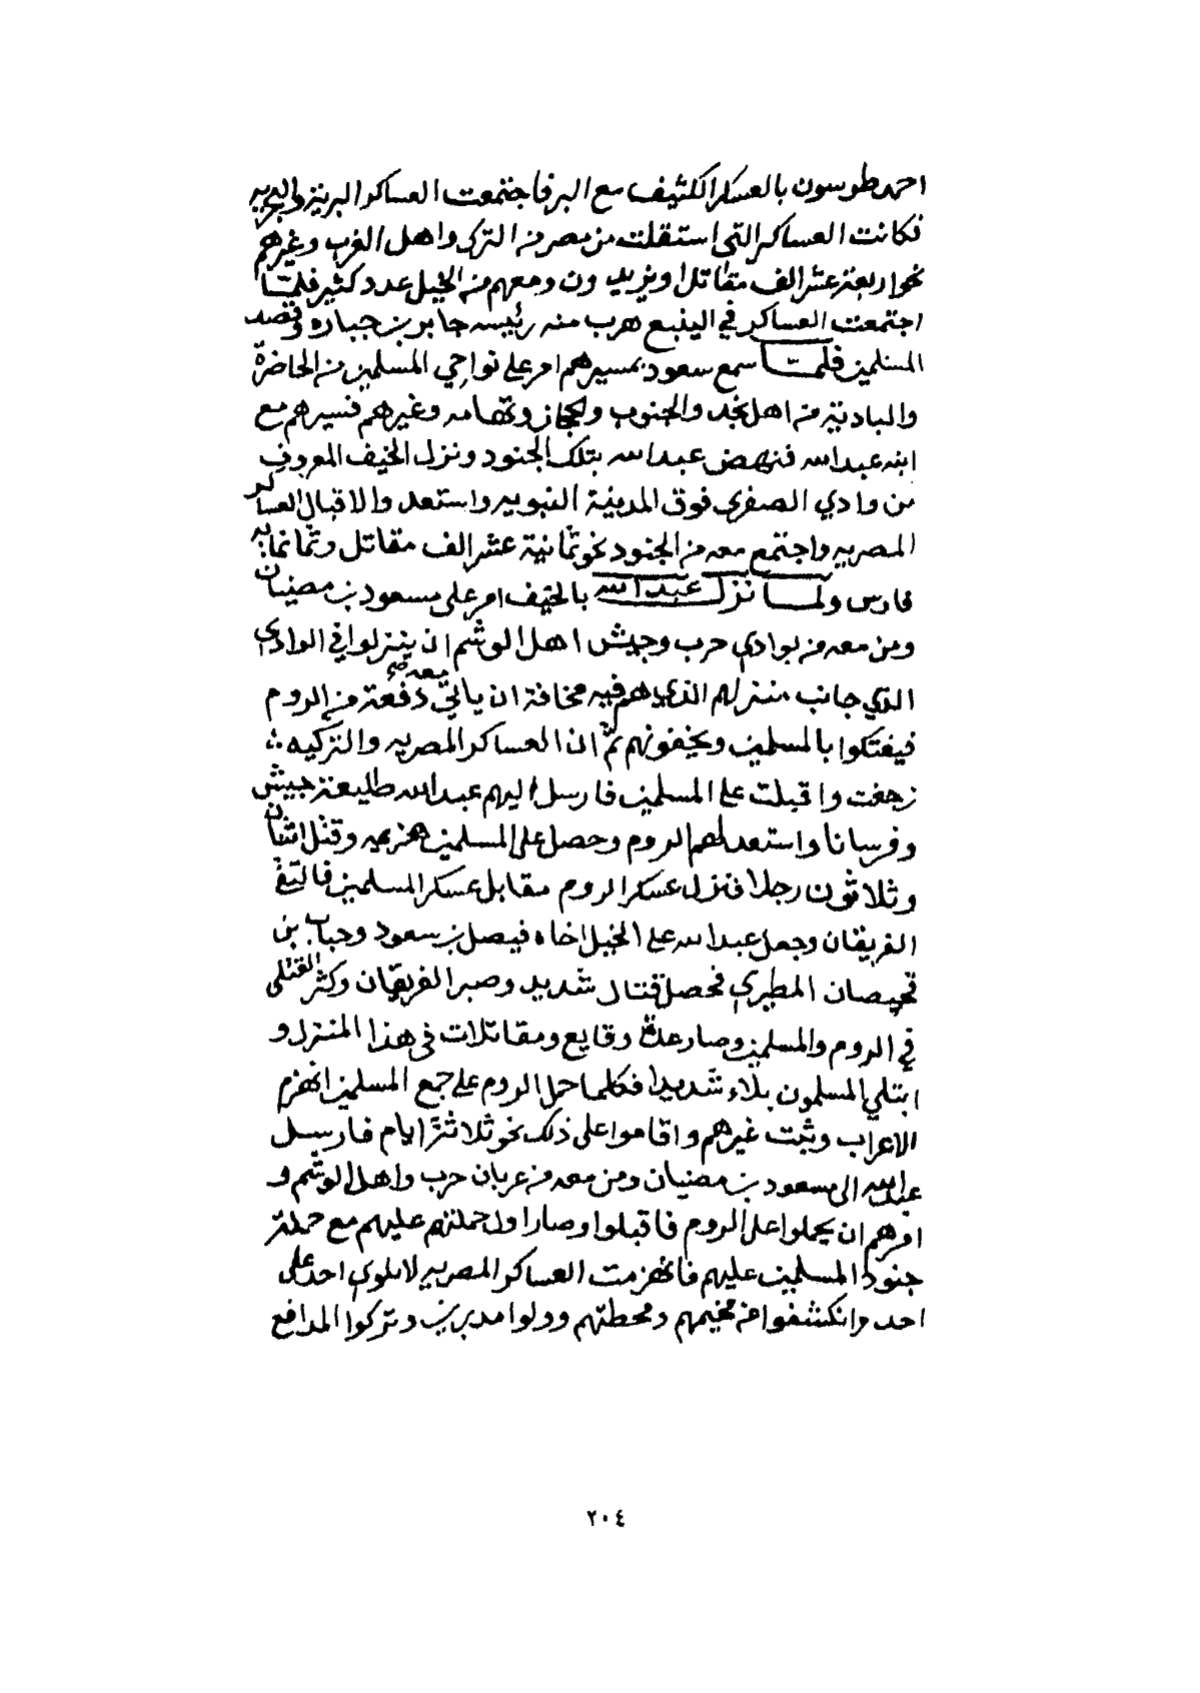 احمد طوسون بالعسكر الكثيف مع البر فاجتمعت العساكر البرية والبحريه
فكانت العساكر التي استقلت من مصر من الترك واهل الغرب وغيرهم
نحو اربعة عشر الف مقاتل او يزيدون ومعهم من الخيل عدد كثير فلما
اجتمعت العساكر في الينبع هرب منه رئيسه جابر بن جباره وقصد
المسلمين فلما سمع سعود بمسيرهم امر على نواحي المسلمين من الحاضرة
والبادية من اهل نجد والجنوب والحجاز وتهامه وغيرهم فسيرهم مع
ابنه عبدالله فنهض عبدالله بتلك الجنود ونزل الخيف المعروف
من وادي الصفرى فوق المدينة النبويه واستعد والاقبال العساكر
المصريه واجتمع معه من الجنود نحو ثمانية عشر الف مقاتل وثمانمايه
فارس ولما نزل عبدالله بالخيف امر على مسعود بن مضيان
ومن معه من بوادي حرب وجيش اهل الوشم ان ينزلوا في الوادي
الذي جانب منزلهم الذي هم فيه مخافة ان ياتي معه دفعة من الروم
فيفتكوا بالمسلمين ويخفونهم ثم ان العساكر المصريه والتركيه
زحفت واقبلت على المسلمين فارسل اليهم عبدالله طليعة جيش
وفرسانا واستعد لهم الروم وحصل على المسلمين هزيمه وقتل اثنان
وثلاثون رجلا فنزل عسكر الروم مقابل عسكر المسلمين فالتقى
الفريقان وجعل عبدالله على الخيل اخاه فيصل بن سعود وحباب بن
قحيصان المطيري فحصل قتال شديد وصبر الفريقان وكثر القتلى
في الروم والمسلمين وصار عدة وقايع ومقاتلات في هذا المنزل و
ابتلي المسلمون بلاء شديدا فكلما حمل الروم على جمع المسلمين انهزم
الاعراب وثبت غيرهم واقاموا على ذلك نحو ثلاثة ايام فارسل
عبدالله الى مسعود بن مضيان ومن معه من عربان حرب واهل الوشم و
امرهم ان يحملوا على الروم فاقبلوا وصار اول حملتهم عليهم مع حملة
جنود المسلمين عليهم فانهزمت العساكر المصريه لا يلوي احد على
احد وانكشفوا عن مخيمهم ومحطتهم وولوا مدبرين وتركوا المدافع
٢٠٤